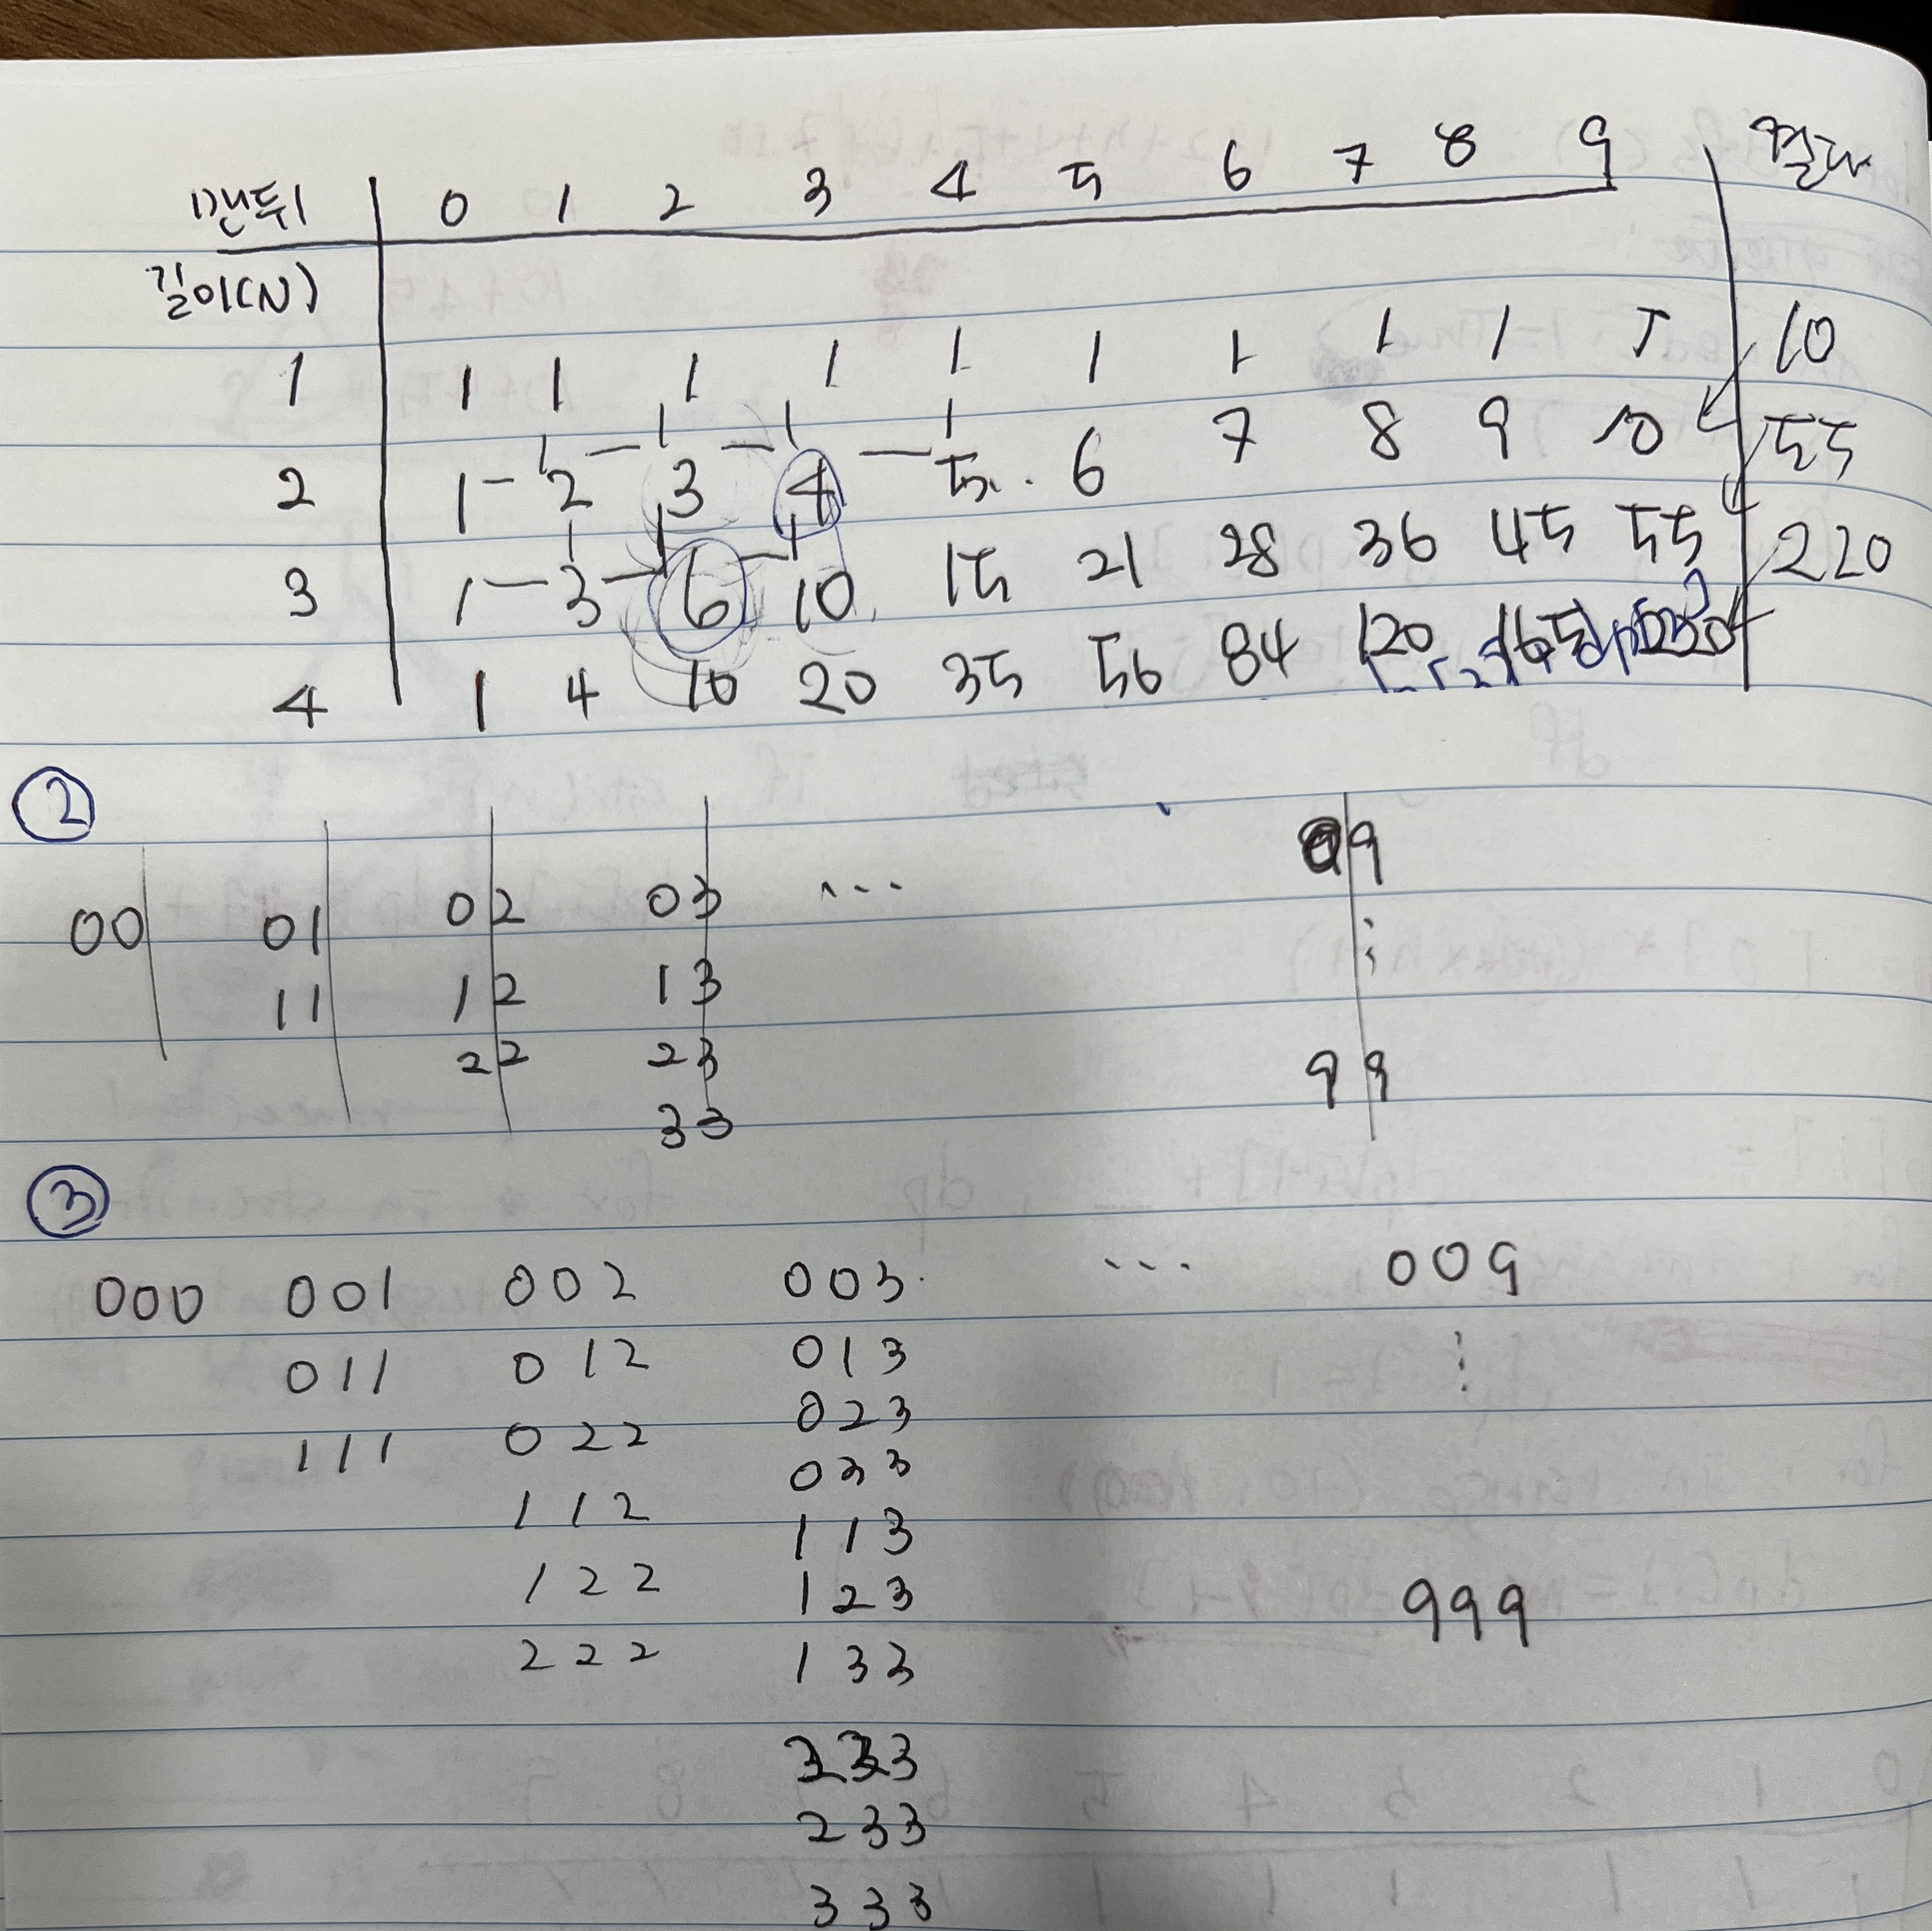 맨뒤 0 1 2 3 4 5 6 7 8 9 결과
길이(N)
1 1 1 1 1 1 1 1 1 1 1 10
2 1 2 3 4 5 6 7 8 9 10 55
3 1 3 6 10 15 21 28 36 45 55 220
4 1 4 10 20 35 56 84 120 165 220
②
00 01 02 03 ... 09
11 12 13 ⋮
22 23 99
33
③
000 001 002 003 ... 009
011 012 013 ⋮
023
111 022 033
112 113
122 123 999
222 133
223
233
333